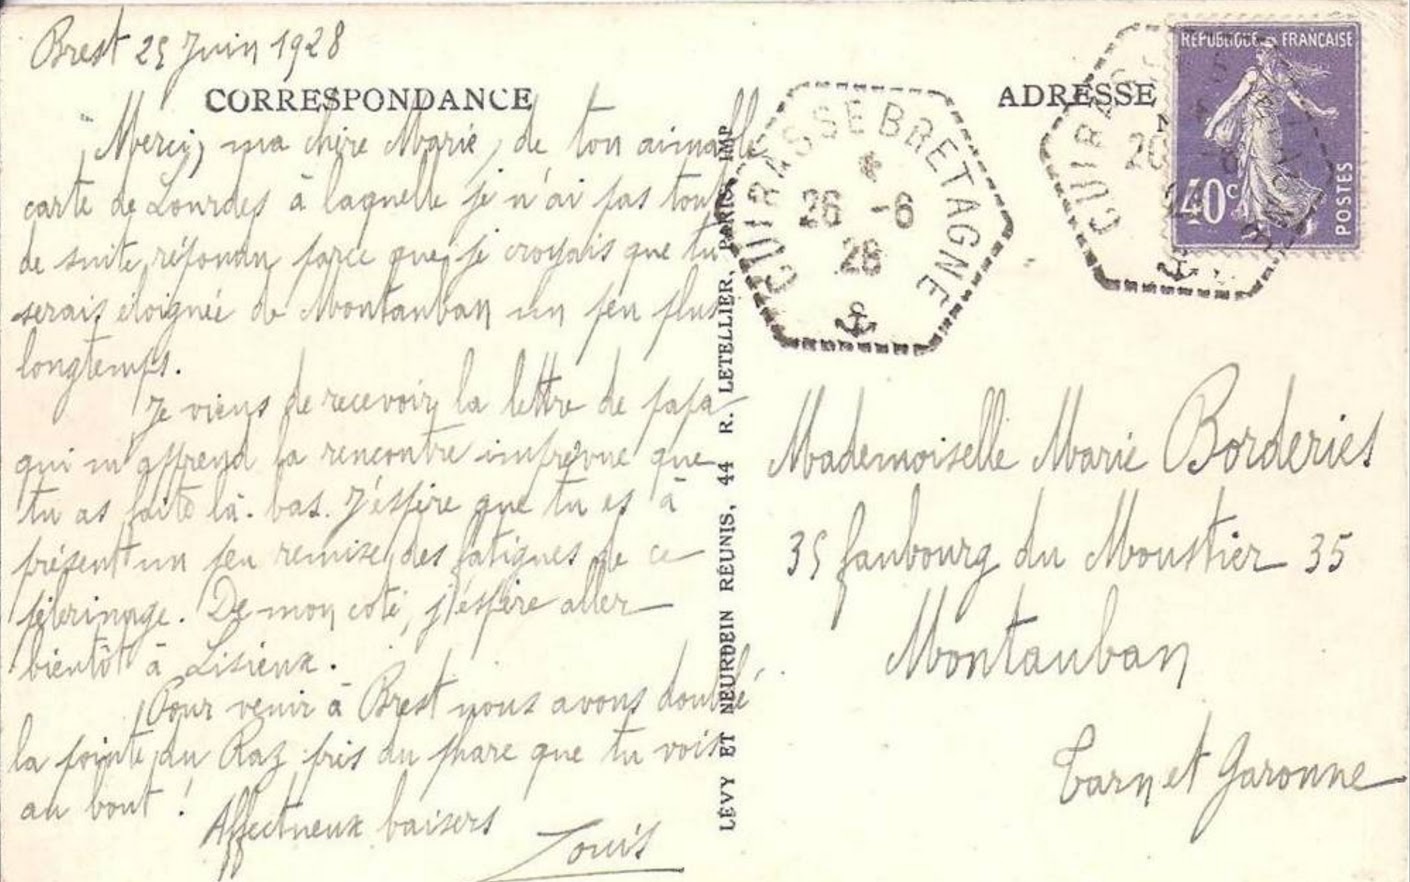 Brest 25 Juin 1928
CORRESPONDANCE
Merci, ma chère Marie, de ton aimable
carte de Lourdes à laquelle je n'ai pas tout
de suite répondu parce que je croyais que tu
serais éloignée de Montauban un peu plus
longtemps.
Je viens de recevoir la lettre de papa
qui m'apprend la rencontre imprévue que
tu as faite là-bas. J'éspère que tu es à
présent un peu remise des fatigues de ce
pèlerinage. De mon coté, j'éspère aller
bientôt à Lisieux.
Pour venir à Brest nous avons doublé
la pointe du Raz près du phare que tu vois
au bout !
Affectueux baisers
Louis
LÉVY ET NEURDEIN RÉUNIS, 44 R. LETELLIER, PARIS. IMP
CUIRASSE BRETAGNE
*
26 -6
28
ADRESSE
CUIRAS
26 -6
REPUBLIQUE FRANÇAISE
40c
POSTES
Mademoiselle Marie Borderies
35 faubourg du Moustier 35
Montauban
Tarn et Garonne